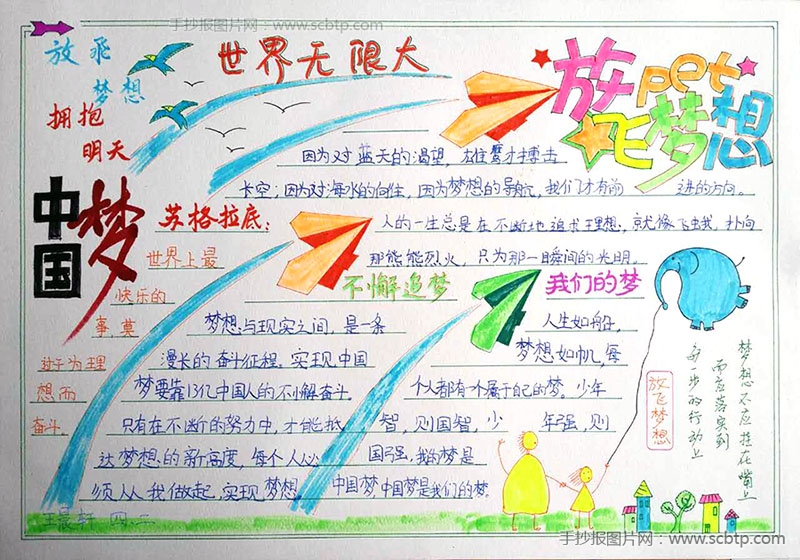 手抄报图片网：www.scbtp.com
放飞
梦想
拥抱
明天
世界无限大
放飞梦想
pet
因为对蓝天的渴望，雄鹰才搏击
长空；因为对海水的向往，因为梦想的导航，我们才有前
进的方向。
中国梦
苏格拉底：
世界上最
快乐的
事莫
过于为理
想而
奋斗。
人的一生总是在不断地追求理想，就像飞虫我，扑向
那能能烈火，只为那一瞬间的光明。
不懈追梦
梦想与现实之间，是一条
漫长的奋斗征程。实现中国
梦要靠13亿中国人的不懈奋斗。
只有在不断的努力中，才能抵
达梦想的新高度，每个人必
须从人我做起，实现梦想。
我们的梦
人生如船，
梦想如帆，每
个人都有一个属于自己的梦。少年
智，则国智，少年强，则
国强，我的梦是
中国梦，中国梦是我们的梦。
放飞梦想
梦想不应挂在嘴上
而应落实到
每一步的行动上
四.二
手抄报图片网：www.scbtp.com